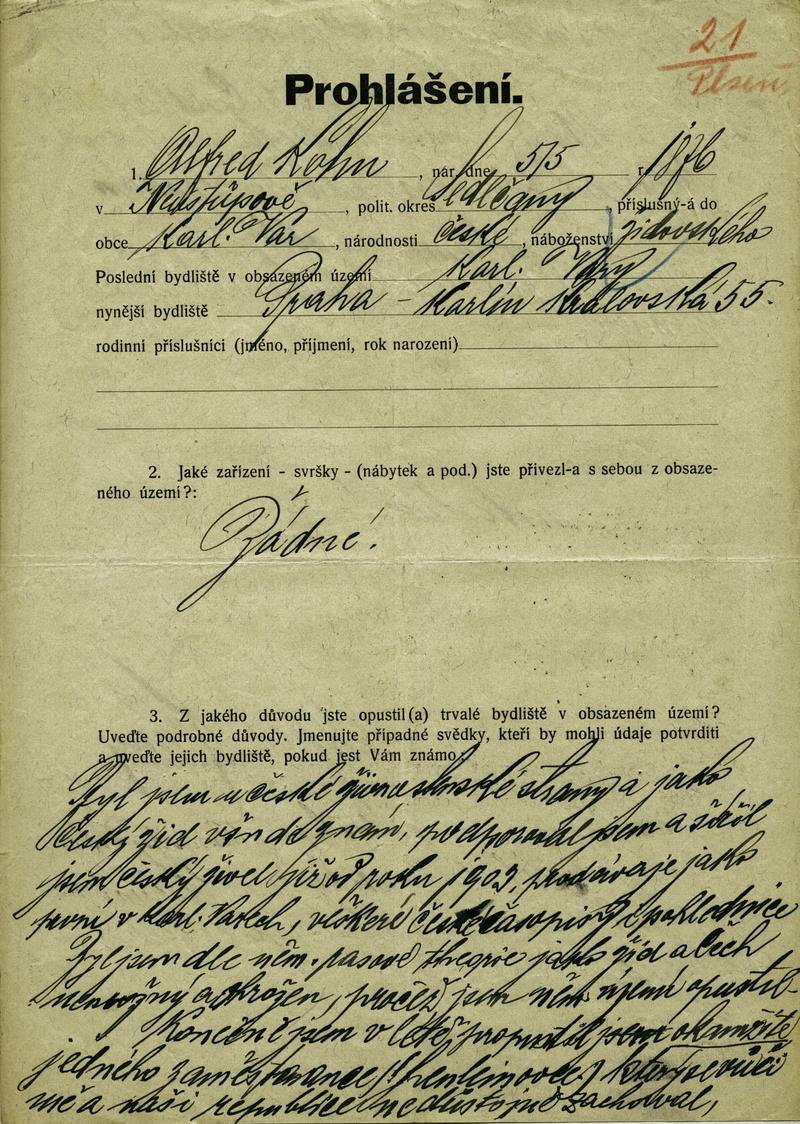 21
Plseň
Prohlášení.
1. Alfred Kohn, nar. dne 5/5 r. 1876
v Neustupově, polit. okres Sedlčany, příslušný-á do
obce Karl. Var, národnosti české, náboženství židovského
Poslední bydliště v obsazeném území Karl. Vary
nynější bydliště Praha - Karlín Královská 55.
rodinní příslušníci (jméno, příjmení, rok narození)
2. Jaké zařízení - svršky - (nábytek a pod.) jste přivezl-a s sebou z obsaze-
ného území?:
Žádné!
3. Z jakého důvodu jste opustil(a) trvalé bydliště v obsazeném území?
Uveďte podrobné důvody. Jmenujte případné svědky, kteří by mohli údaje potvrditi
a uveďte jejich bydliště, pokud jest Vám známo.
Byl jsem u české strany a jako
český žid všude znám, podporoval jsem a šířil
jsem český živel již od roku 1909, prodávaje jako
první v Karl. Varech, veškeré české časopisy i
Byl jsem dle něm. rasové theorie jako žid a Čech
a ohrožen, pročež jsem něm. území opustil.
Konečně jsem v létě propustil jsem okamžitě
jednoho zaměstnance (henleinovce) který se vůči
mě a naší republice nedůstojně zachoval,